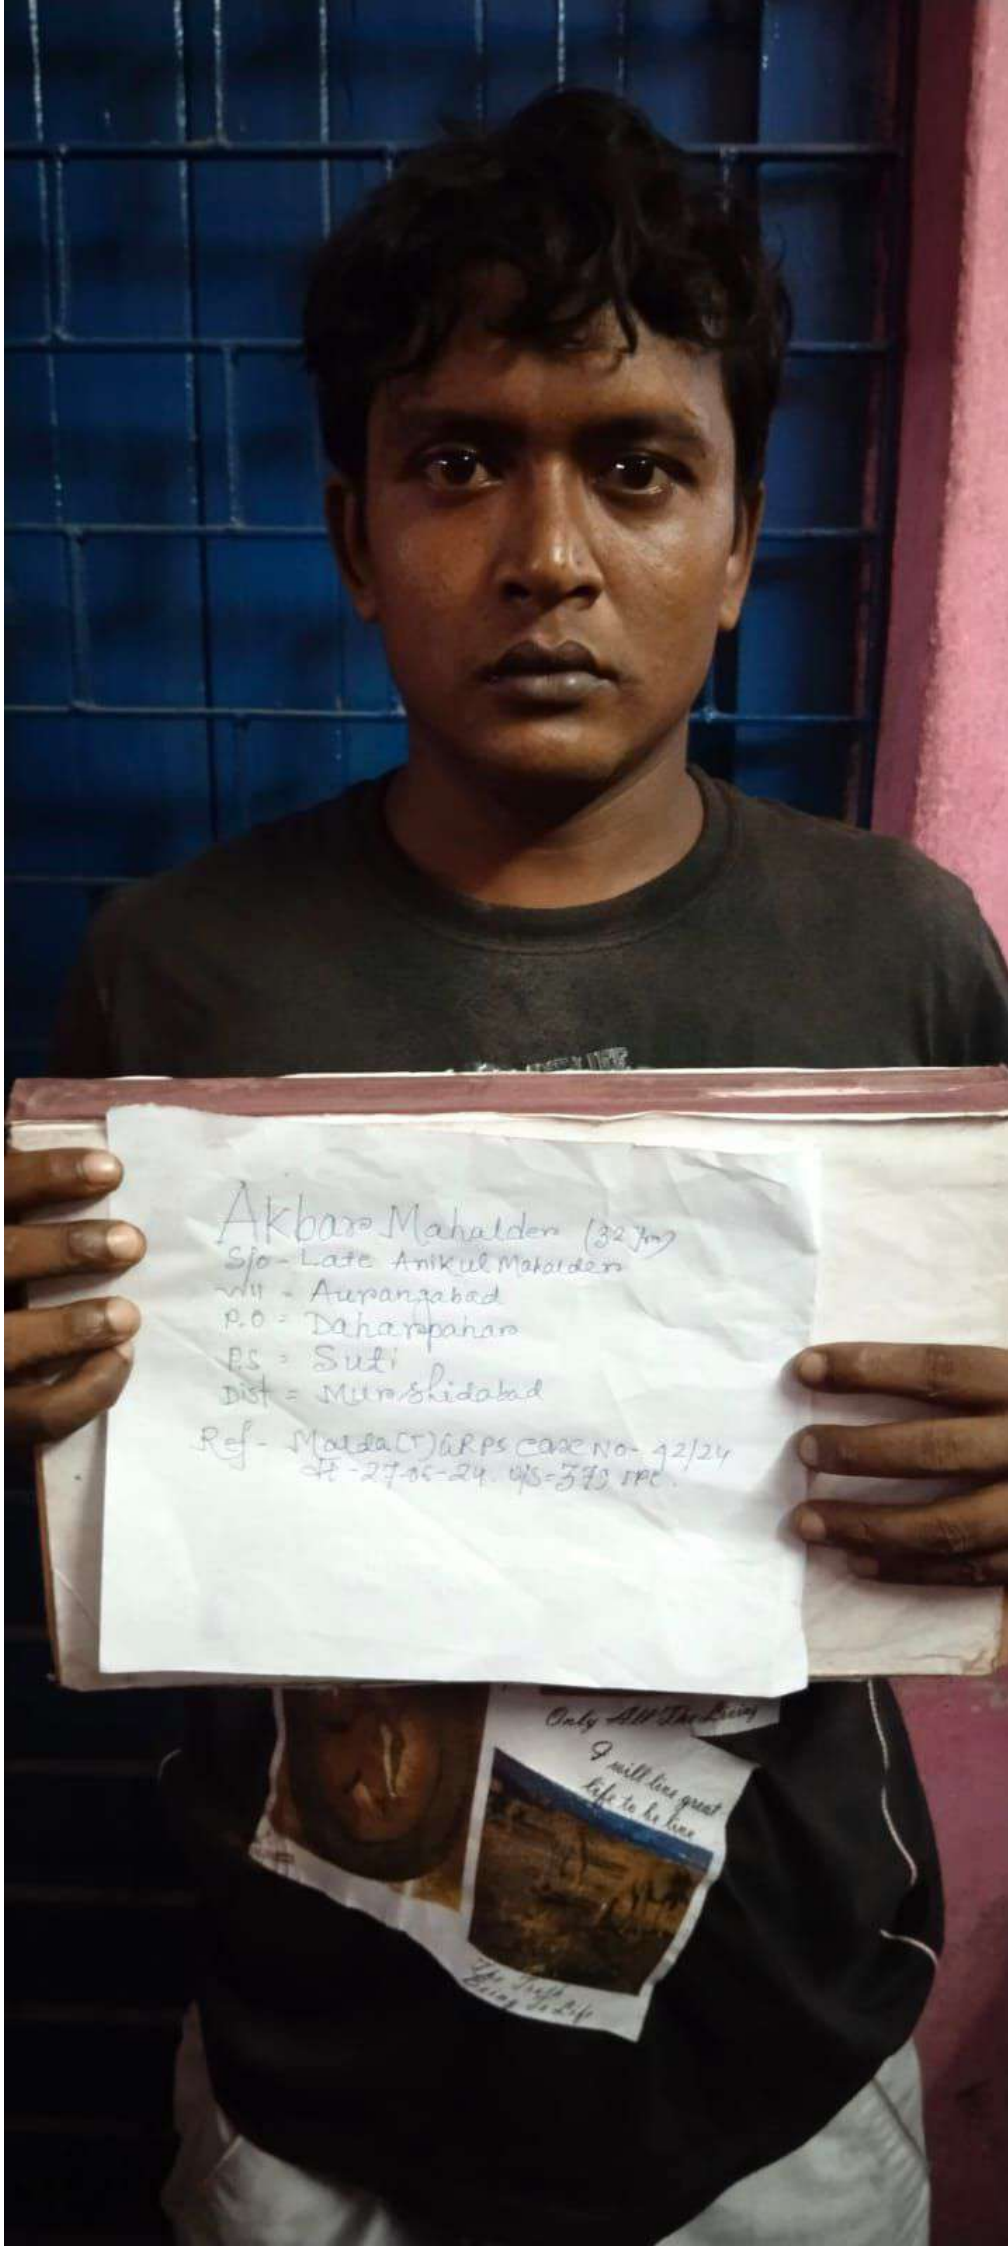 Akbar Mahalder (32 yrs)
S/o - Late Anikul Mahalder
Vill - Aurangabad
P.O = Daharpahar
P.S = Suti
Dist = Murshidabad
Ref - Malda(T) GRPS Case No- 92/24
dt -27-05-24. u/s-379 IPC.
Only All The Living
I will live great
life to be live
The Truth
Being To Life